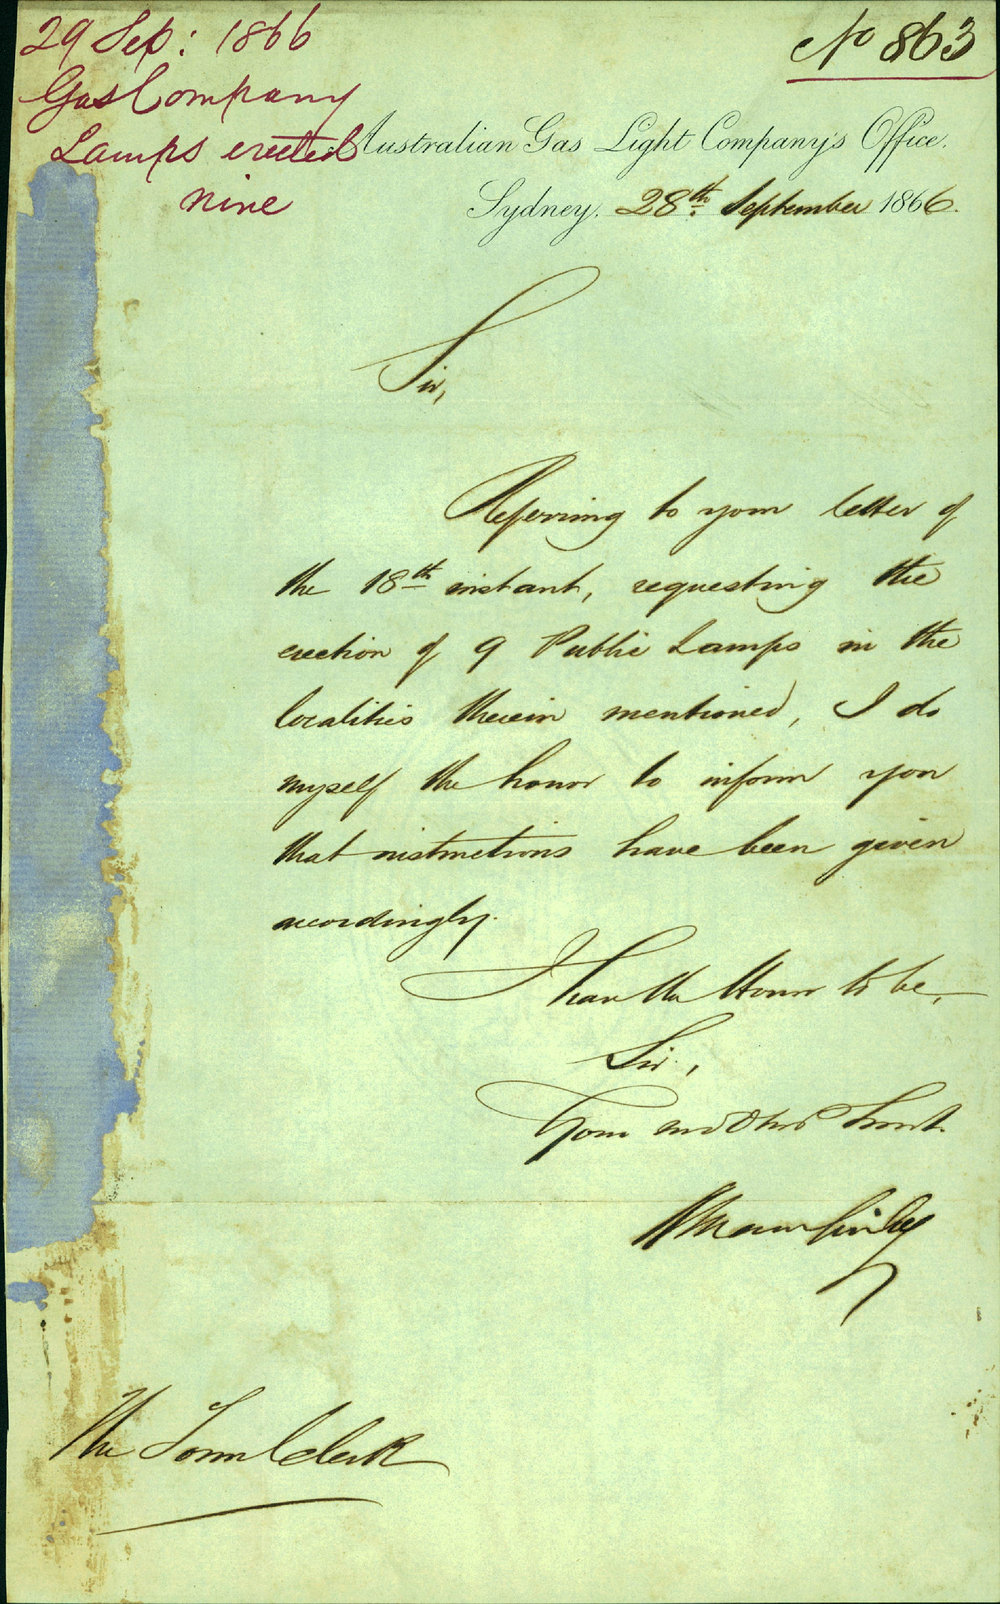 29 Sep: 1866
Gas Company
Lamps erected
nine
No 863
Australian Gas Light Company's Office.
Sydney, 28th September 1866.
Sir,
Referring to your letter of
the 18th instant, requesting the
erection of 9 Public Lamps in the
localities therein mentioned, I do
myself the honor to inform you
that instructions have been given
accordingly.
I have the Honor to be,
Sir,
Your most Obed Servt.
The Town Clerk